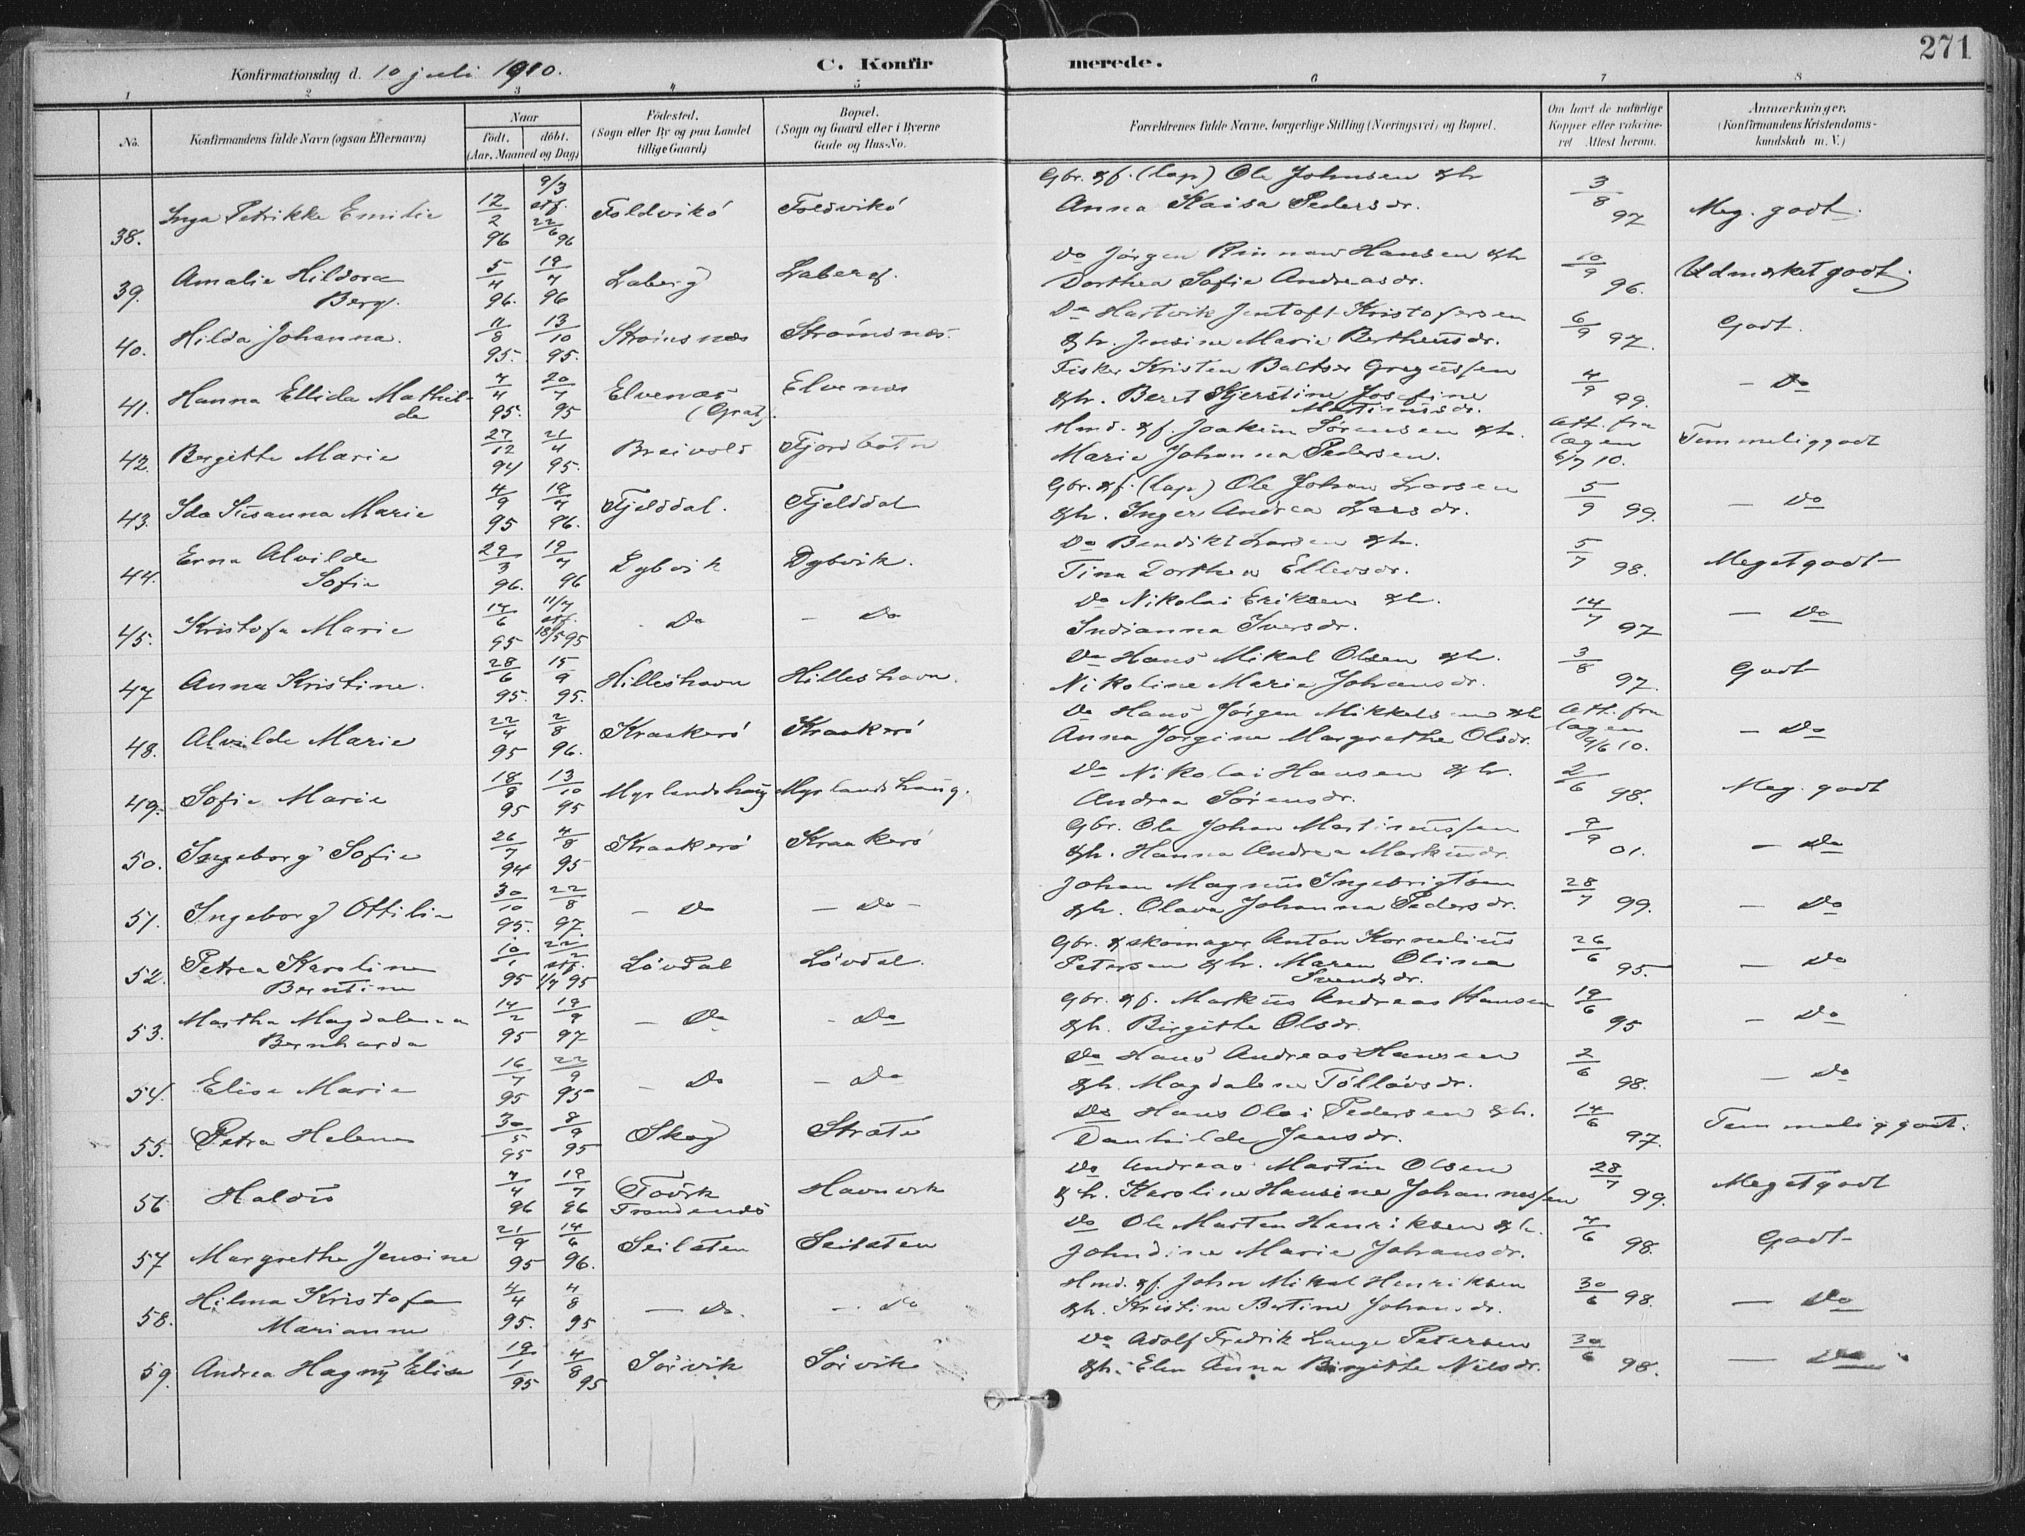 271
Konfirmationsdag d. 10 juli 1910. C. Konfirmerede.
1 2 3 4 5 6 7 8
No. Konfirmandens fulde Navn (ogsaa Efternavn) Naar født. døbt. (Aar, Maaned og Dag) Födested. (Sogn eller By og paa Landet tillige Gaard) Bopæl. (Sogn og Gaard eller i Byerne Gade og Hus-No. Forældrenes fulde Navne, borgerlige Stilling (Næringsvei) og Bopæl. Om havt de naturlige Kopper eller vakcineret Attest herom. Anmærkninger. (Konfirmandens Kristendomskundskab m. V.)
38. Inga Petrikke Emilie 12/2 96 9/3 stf. 22/6 96 Foldvikö Foldvikö Gbr. & f. (lap) Ole Johnsen & h. Anna Kaisa Pedersdr. 3/8 97 Meg. godt.
39. Amalie Hildora Berg. 5/4 96. 19/7 96 Laberg Laberg. Do Jørgen Rinnaw Hansen & h Dorthea Sofie Andreasdr. 10/9 96. Udmerket godt.
40. Hilda Johanna. 11/8 95. 13/10 95. Strömsnæs Strömsnæs. Do Hartvik Jentoft Kristofersen & h. Jensine Marie Bertheusdr. 6/9 97. Godt.
41. Hanna Ellida Mathilde 7/4 95. 20/7 95 Elvenæs (Grat.) Elvenæs Fisker Kristen Baltser Gregussen & h. Beret Kjerstine Josefine Martinusdr. 4/9 99. — Do
42. Bergitte Marie 27/12 94 21/4 95. Breivold Fjordbotn Hmd. & f. Joakim Sørensen & h. Marie Johanna Pedersen. Att. fra lægen 6/7 10. Temmelig godt
43. Ida Susanna Marie 4/9 95 19/7 96. Fjelddal. Fjelddal Gbr. & f. (lap) Ole Johan Larsen & h. Inger Andrea Larsdr. 5/9 99. — Do
44. Erna Alvilde Sofie 29/3 96. 19/7 96 Dybvik Dybvik. Do Bendikt Larsen & h. Tina Dorthea Ellevsdr. 5/7 98. Meget godt
45. Kristofa Marie 17/6 95 11/7 stf. 18/5 95 — Do — Do Do Nikolai Eriksen & h. Indianna Iversdr. 14/7 97 — Do
47 Anna Kristine. 28/6 95. 15/9 95. Hilleshavn Hilleshavn. Do Hans Mikal Olsen & h. Nikoline Marie Johansdr. 3/8 97. Godt
48. Alvilde Marie 22/4 95 2/8 96. Kraakerö Kraakerö Do Hans Jörgen Mikkelsen & h Anna Jörgine Margrethe Olsdr. Att. fra lægen 9/6 10. — Do
49. Sofie Marie 18/8 95 13/10 95 Myrlandshaug Myrlandshaug. Do Nikolai Hansen & h. Andrea Sörensdr. 2/6 98. Meg. godt
50. Ingeborg Sofie 26/7 94 4/8 95 Kraakerö Kraakerö Gbr. Ole Johan Martinussen & h. Hanna Andrea Markusdr. 9/9 01. — Do
51. Ingeborg Ottilie 30/10 95. 22/8 97. — Do — Do — Johan Magnus Ingebrigtsen & h. Olava Johanna Pedersdr. 28/7 99. — Do
52. Petrea Karoline Berntine 10/1 95 22/2 stf. 1/7 95 Lövdal Lövdal. Gbr. & skomager Anton Kornelius Petersen & h. Maren Olinea Svendsdr. 26/6 95. — Do
53. Martha Magdalena Bernharda 14/2 95 19/9 97 — Do — Do Gbr. & f. Markus Andreas Hansen & h. Birgithe Olsdr. 19/6 95 — Do
54. Elise Marie 16/7 95 22/9 95 — Do — Do Do Hans Andreas Hansen & h. Magdalena Tollövsdr. 2/6 98. — Do
55. Petra Helene 30/5 95 8/9 95 Skog Stræte Do Hans Olai Pedersen & h. Danhilde Jensdr. 14/6 97. Temmelig godt.
56 Haldis 7/4 96 19/7 96 Tovik Trondenæs Havnvik Do Andreas Martin Olsen & h. Karoline Hansine Johannessen 28/7 99. Meget godt
57 Margrethe Jensine 21/9 95 14/6 96. Seilæten Seilæten Do Ole Marten Henriksen & h. Johndine Marie Johansdr. 7/6 98. Godt
58. Hilma Kristofa Marianne 4/4 95. 4/8 95 — Do. — Do Hmd. & f. John Mikal Henriksen & h. Kristine Bertine Johansdr. 30/6 98. — Do
59. Andrea Hagny Elise 19/1 95 4/8 95 Sörvik Sörvik Do Adolf Fredrik Lange Petersen & h. Elen Anna Birgitte Nilsdr. 30/6 98. — Do